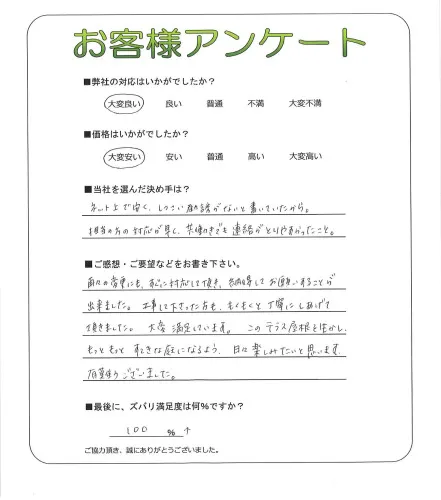 お客様アンケート
■弊社の対応はいかがでしたか？
大変良い 良い 普通 不満 大変不満
■価格はいかがでしたか？
大変安い 安い 普通 高い 大変高い
■当社を選んだ決め手は？
ネット上で安く、しつこい勧誘がないと書いていたから。
担当の方の対応が早く、共働きでも連絡がとりやすかったこと。
■ご感想・ご要望などをお書き下さい。
我々の要望にも、対応して頂き、納得してお願いすることが
出来ました。工事して下さった方も、もくもくと丁寧にしあげて
頂きました。大変満足しています。このテラス屋根を生かし、
もっともっとすてきな庭になるよう、日々楽しみたいと思います。
ございました。
■最後に、ズバリ満足度は何%ですか？
100 %
ご協力頂き、誠にありがとうございました。